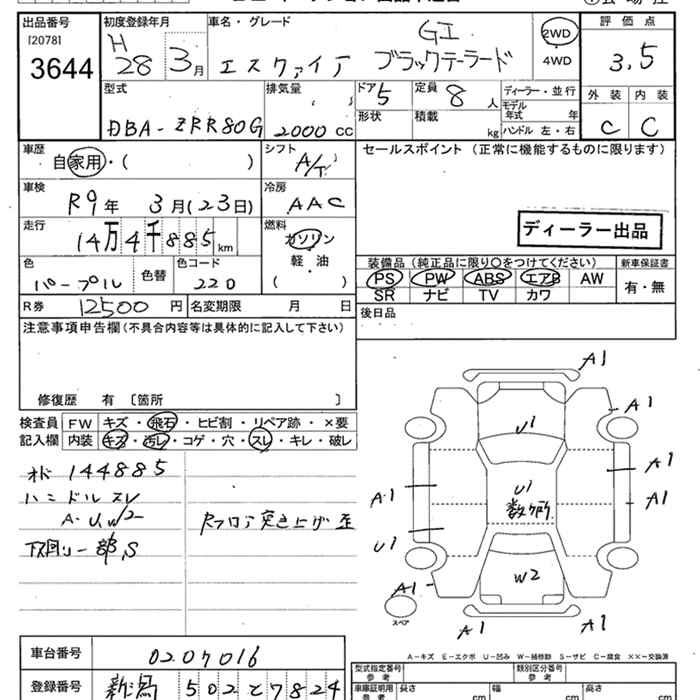 出品番号
[2078]
3644
初度登録年月
H
28 3月
車名・グレード
エスクァイア
GI
ブラックテーラード
2WD
・
4WD
評価点
3.5
外装 内装
C C
型式
DBA-ZRR80G
排気量
2000 cc
ドア 5
形状
定員 8 人
積載 kg
ディーラー・並行
モデル
年式 年
ハンドル 左・右
車歴
自家用・( )
シフト
A/T
セールスポイント (正常に機能するものに限ります)
車検
R9年 3月(23日)
冷房
AAC
ディーラー出品
走行
14万4千885km
燃料
ガソリン
軽・油
・
( )
色
パープル
色替
色コード
220
装備品 (純正品に限り○をつけてください)
PS PW ABS エアB AW
SR ナビ TV カワ
新車保証書
有・無
R券 12500円
名変期限 月 日
後日品
注意事項申告欄(不具合内容等は具体的に記入して下さい)
修復歴 有 〔箇所 〕
検査員
記入欄
FW キズ・飛石・ヒビ割・リペア跡・×要
内装 キズ・汚レ・コゲ・穴・スレ・キレ・破レ
オド 144885
ハンドルスレ
A・U.W2
下回リ一部S
Rフロア突き上げ 歪
A1
A1
U1
A1
A1
A1
U1
数ヶ所
U1
W2
A1
A1
A1
スペア
A-キズ E-エクボ U-凹み W-補修跡 S-サビ C-腐食 ××-交換済
車台番号
0207016
登録番号
新潟 502 と 7824
型式指定番号
参考
類別区分番号
参考
車庫証明用
参考
長さ cm
幅 cm
高さ cm